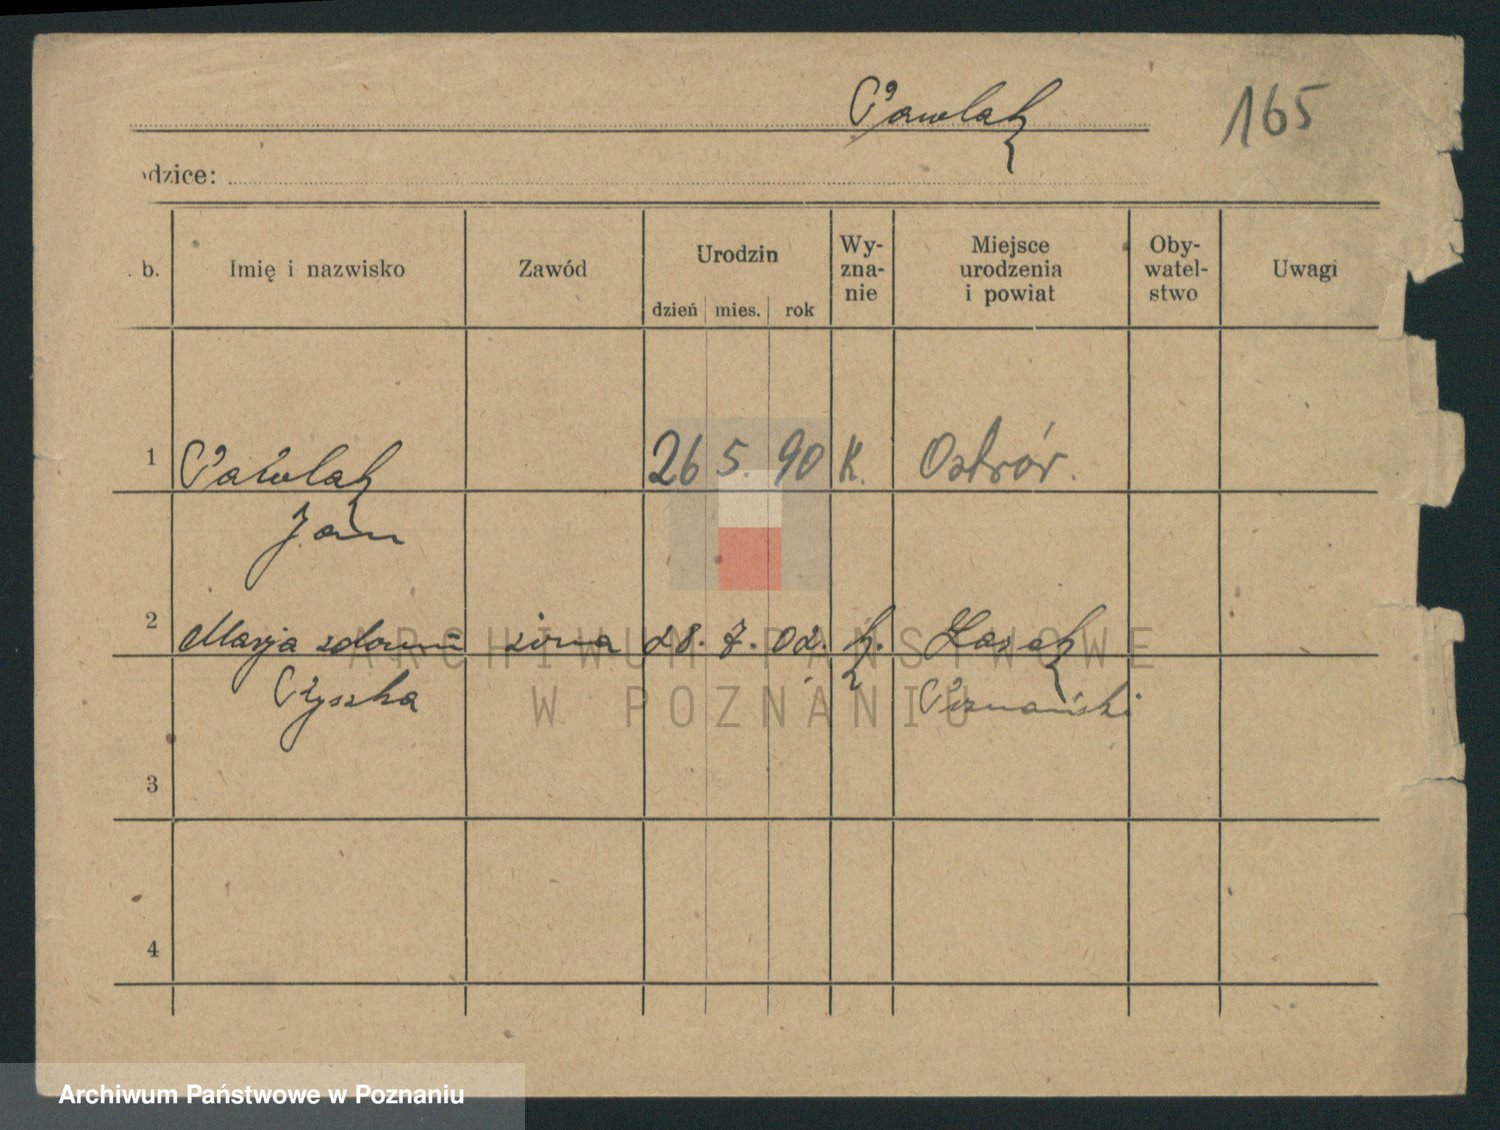 Pawlak
165
odzice:
b. Imię i nazwisko Zawód Urodzin dzień mies. rok Wy-zna-nie Miejsce urodzenia i powiat Oby-watel-stwo Uwagi
1 Pawlak 26 5. 90 K. Ostrór.
Jan
2 Marja zdomu żona 28. 7. 02. k. Lasek
Pyszka Poznański
3
4
ARCHIWUM PAŃSTWOWE
W POZNANIU
Archiwum Państwowe w Poznaniu